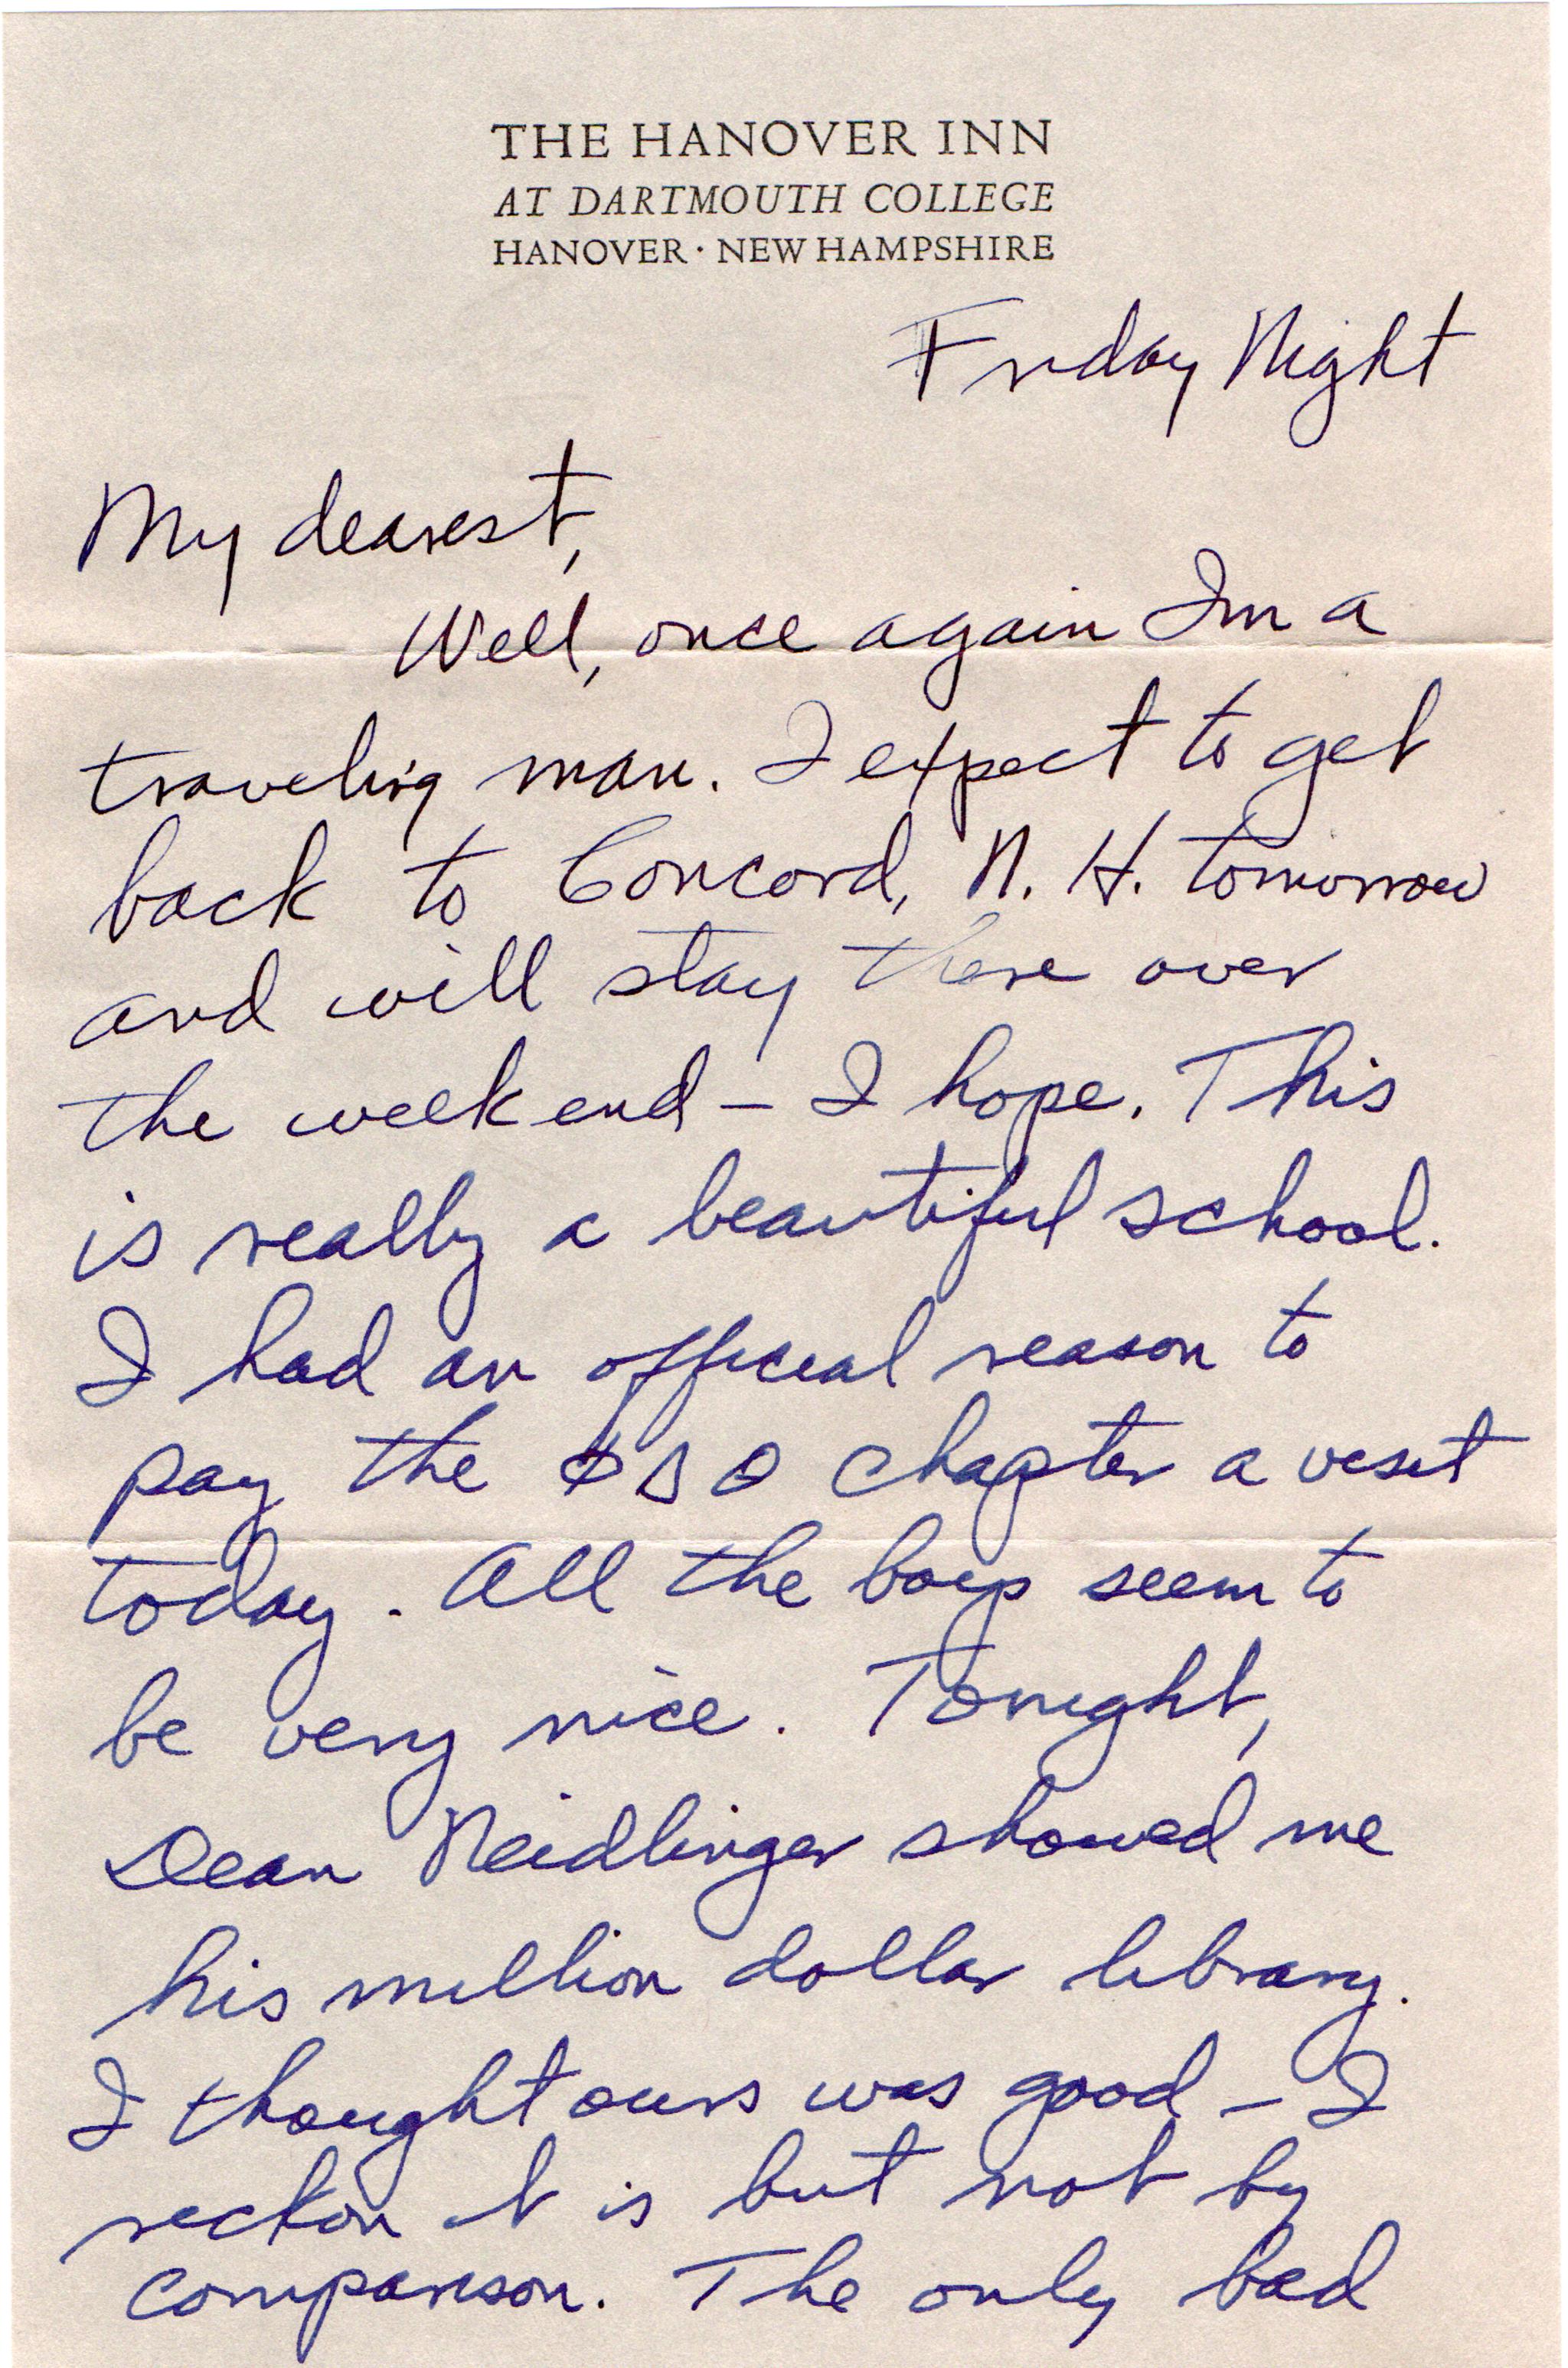 THE HANOVER INN
AT DARTMOUTH COLLEGE
HANOVER · NEW HAMPSHIRE
Friday Night
My dearest,
Well, once again Im a
traveling man. I expect to get
back to Concord, N. H. tomorrow
and will stay there over
the week end – I hope. This
is really a beautiful school.
I had an official reason to
pay the Φ Δ Θ chapter a visit
today. All the boys seem to
be very nice. Tonight,
Dean Neidlinger showed me
his million dollar library.
I thought ours was good – I
reckon it is but not by
comparison. The only bad